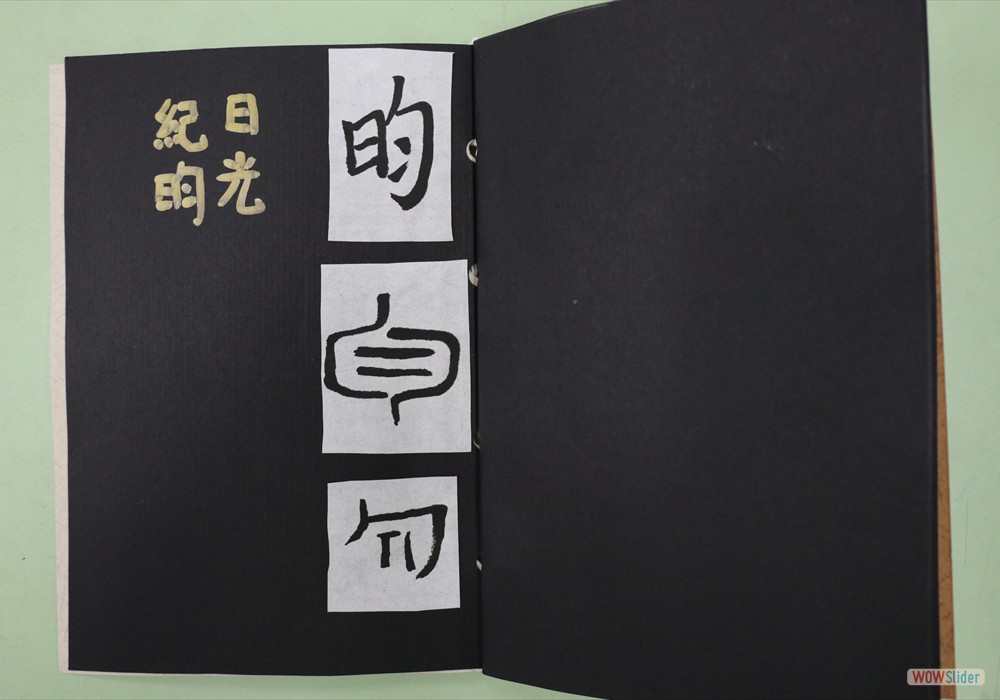 昀
日光
紀昀
WOWSlider